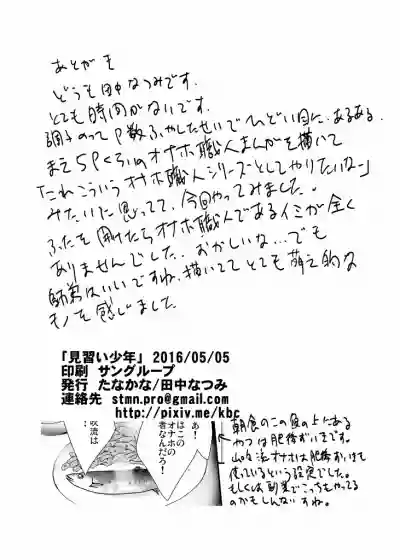 あとがき
どうも田中なつみです。
とても時間がないです。
調子のってP数ふやしたせいでひどい目に、あるある。
まえ5Pくらいのオナホ職人まんがを描いて
「これこういうオナホ職人シリーズとしてやりたいなー」
みたいに思ってて、今回やってみました。
ふたを開けたらオナホ職人であるイミが全く
ありませんでした。おかしいな…でも
師弟はいいですね、描いててとても萌え的な
モノを感じました。
「見習い少年」 2016/05/05
印刷 サングループ
発行 たなかな/田中なつみ
連絡先 stmn.pro@gmail.com
http://pixiv.me/kbc
あ！
はこの
オナホの
者なんだろ！
流は
朝食のこの魚の上にある
やつは肥後ずいきです。
流オナホは肥後ずいきも
使っているという設定でした。
もしくは副業でこっちもやってる
のかもしんないすね。